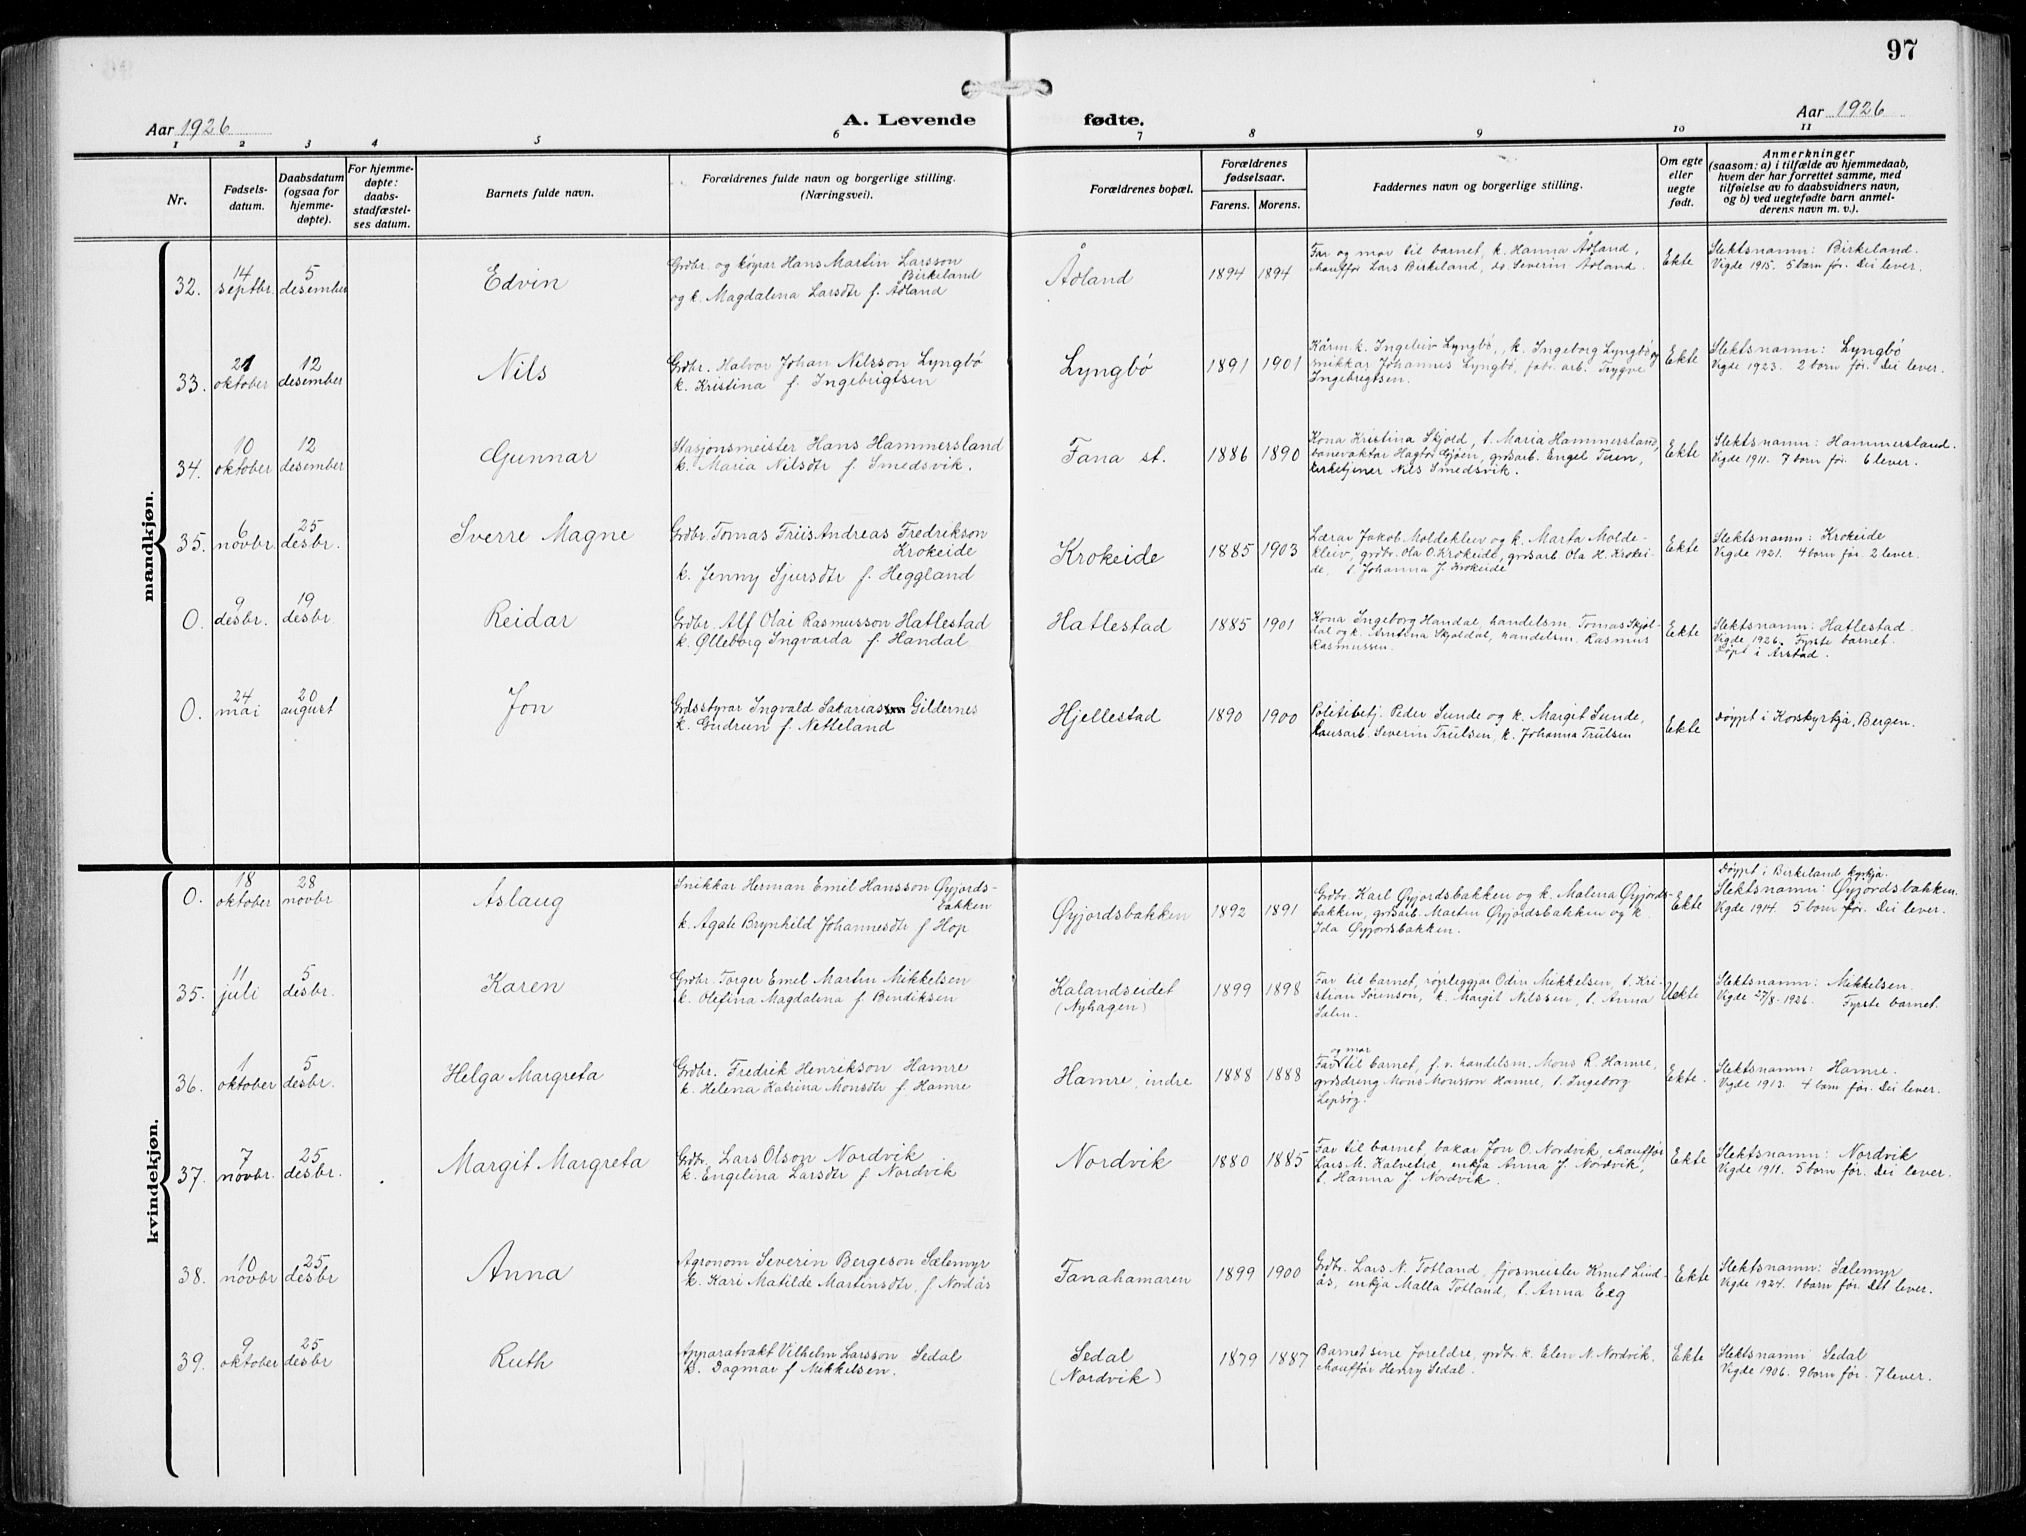 97
Aar 1926
A. Levende
fødte.
Aar 1926
1 2 3 4 5 6 7 8 9 10 11
Nr.
Fødsels-
datum.
Daabsdatum
(ogsaa for
hjemme-
døpte).
For hjemme-
døpte:
daabs-
stadfæstel-
ses datum.
Barnets fulde navn.
Forældrenes fulde navn og borgerlige stilling.
(Næringsvei).
Forældrenes bopæl.
Forældrenes
fødselsaar.
Farens. Morens.
Faddernes navn og borgerlige stilling.
Om egte
eller
uegte
født.
Anmerkninger
(saasom: a) i tilfælde av hjemmedaab,
hvem der har forrettet samme, med
tilføielse av to daabsvidners navn,
og b) ved uegtefødte barn anmel-
derens navn m. v.).
mandkjøn.
32.
14
septbr.
5
desember
Edvin
Grdbr. og køyrar Hans Martin Larsson
Birkeland
og k. Magdalena Larsdtr f. Ådland
Ådland
1894 1894
Far og mor til barnet, k. Hanna Ådland,
chauffør Lars Birkeland, ds Severin Ådland.
Ekte
Slektsnamn: Birkeland.
Vigde 1915. 5 barn før. Dei lever.
33.
21
oktober
12
desember
Nils
Grdbr. Halvor Johan Nilsson Lyngbø
k. Kristina f. Ingebrigtsen
Lyngbø
1891 1901
Kårm. k. Ingeleiv Lyngbø, k. Ingeborg Lyngbø og
snikkar Johannes Lyngbø, fabr. arb. Trygve
Ingebrigtsen.
Ekte
Slektsnamn: Lyngbø
Vigde 1923. 2 born før. Dei lever.
34.
10
oktober
12
desember
Gunnar
Stasjonsmeister Hans Hammersland
k. Maria Nilsdtr f. Smedsvik.
Fana st.
1886 1890
Kona Kristina Skjold, t. Maria Hammersland,
banevaktar Hagbr. Gjøen, grdsarb. Engel Tuen,
kirketjener Nils Smedsvik.
Ekte
Slektsnamn: Hammersland.
Vigde 1911. 7 born før. 6 lever.
35.
6
novbr.
25
desbr.
Sverre Magne
Grdbr. Tomas Friis Andreas Fredrikson
Krokeide
k. Jenny Sjursdtr f. Heggland
Krokeide
1885 1903
Lærar Jakob Moldekleiv og k. Marta Molde-
kleiv, grdbr. Ola O. Krokeide, grdsarb Ola H. Krokei-
de, t. Johanna J. Krokeide
Ekte
Slektsnamn: Krokeide
Vigde 1921. 4 born før. 2 lever.
0.
9
desbr.
19
desbr.
Reidar
Grdbr. Alf Olai Rasmusson Hatlestad
k. Ølleborg Ingvarda f. Handal
Hatlestad
1885 1901
Kona Ingeborg Handal, handelsm. Tomas Skjol-
dal og k. Arntina Skjoldal, handelsm. Rasmus
Rasmussen
Ekte
Slektsnamn: Hatlestad.
Vigde 1926. Fyrste barnet.
Døpt i Årstad.
0.
24
mai
20
august
Jon
Grdsstyrar Ingvald Sakariassen Gildernes
k. Gudrun f. Netteland
Hjellestad
1890 1900
Politibetj. Peder Sunde og k. Margit Sunde,
lausarb. Severin Trulsen, k. Johanna Trulsen
Ekte
Døypt i Korskyrkja, Bergen.
kvindekjøn.
0.
18
oktober
28
novbr.
Aslaug
Snikkar Herman Emil Hansson Øyjords-
bakken
k. Agate Brynhild Johannesdtr f Hop
Øyjordsbakken
1892 1891
Grdbr. Karl Øyjordsbakken og k. Malena Øyjords-
bakken, grdsarb. Martin Øyjordsbakken og k.
Ida Øyjordsbakken.
Ekte
Døypt i Birkeland kyrkja.
Slektsnamn: Øyjordsbakken.
Vigde 1914. 5 born før. Dei lever.
35.
11
juli
5
desbr.
Karen
Grdbr. Torger Emel Martin Mikkelsen
k. Olefina Magdalena f Bendiksen
Kalandseidet
(Nyhagen)
1899 1898
Far til barnet, rørleggjar Odin Mikkelsen, t. Kri-
stian Sørenson, k. Margit Nilssen, t. Anna
Salen.
Uekte
Slektsnamn: Mikkelsen.
Vigde 27/8. 1926. Fyrste barnet.
36.
1
oktober
5
desbr.
Helga Margreta
Grdbr. Fredrik Henrikson Hamre
k. Helena Katrina Monsdtr f. Hamre
Hamre, indre
1888 1888
og mor
Far til barnet, f. v. handelsm. Mons R. Hamre,
grdsdreng Mons Monsson Hamre, t. Ingeborg
Lepsøg.
Ekte.
Slektsnamn: Hamre.
Vigde 1913. 4 born før. Dei lever.
37.
7
novbr.
25
desbr.
Margit Margreta
Grdbr. Lars Olson Nordvik
k. Engelina Larsdtr f. Nordvik
Nordvik
1880 1885
Far til barnet, bakar Jon O. Nordvik, chauffør
Lars M. Kalvetræ, enkja Anna J. Nordvik,
t. Hanna J. Nordvik.
Ekte
Slektsnamn: Nordvik
Vigde 1911. 5 born før. Dei lever.
38.
10
novbr
25
desbr
Anna
Agronom Severin Bergeson Sælemyr
k. Kari Matilde Martinsdtr, f. Nordås
Fanahamaren
1899 1900
Grdbr. Lars N. Totland, fjosmeister Knut Lind-
ås, enkja Malla Totland, t. Anna Elg
Ekte
Slektsnamn: Sælemyr
Vigde 1924. 1 born før. Det lever.
39.
9
oktober
25
desbr
Ruth
Apparatvakt Vilhelm Larsson Sedal
k. Dagmar f Mikkelsen.
Sedal
(Nordvik)
1879 1887
Barnet sine foreldre, grdbr. k. Elen N. Nordvik.
chauffør Henry Sedal.
Ekte
Slektsnamn Sedal
Vigde 1906. 9 born før. 7 lever.